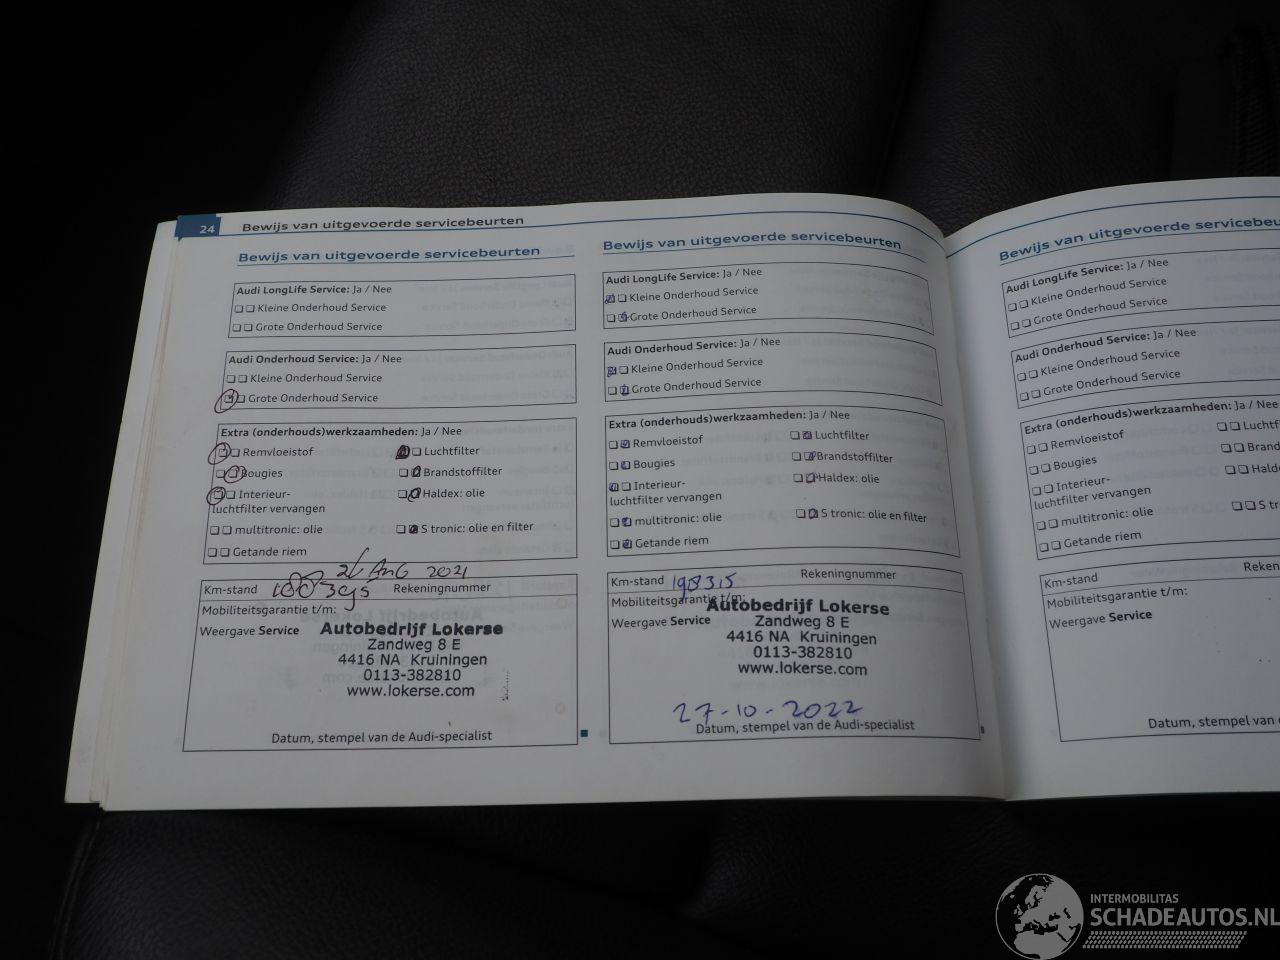 24
Bewijs van uitgevoerde servicebeurten
Bewijs van uitgevoerde servicebeurten
Audi LongLife Service: Ja / Nee
Kleine Onderhoud Service
Grote Onderhoud Service
Audi Onderhoud Service: Ja / Nee
Kleine Onderhoud Service
Grote Onderhoud Service
Extra (onderhouds)werkzaamheden: Ja / Nee
Remvloeistof Luchtfilter
Bougies Brandstoffilter
Interieur- Haldex: olie
luchtfilter vervangen
multitronic: olie S tronic: olie en filter
Getande riem
26 AUG 2021
Km-stand Rekeningnummer
Mobiliteitsgarantie t/m:
Weergave Service
Autobedrijf Lokerse
Zandweg 8 E
4416 NA Kruiningen
0113-382810
www.lokerse.com
Datum, stempel van de Audi-specialist
Bewijs van uitgevoerde servicebeurten
Audi LongLife Service: Ja / Nee
Kleine Onderhoud Service
Grote Onderhoud Service
Audi Onderhoud Service: Ja / Nee
Kleine Onderhoud Service
Grote Onderhoud Service
Extra (onderhouds)werkzaamheden: Ja / Nee
Remvloeistof Luchtfilter
Bougies Brandstoffilter
Interieur- Haldex: olie
luchtfilter vervangen
multitronic: olie S tronic: olie en filter
Getande riem
Km-stand 198315 Rekeningnummer
Mobiliteitsgarantie t/m:
Weergave Service
Autobedrijf Lokerse
Zandweg 8 E
4416 NA Kruiningen
0113-382810
www.lokerse.com
27-10-2022
Datum, stempel van de Audi-specialist
Bewijs van uitgevoerde servicebeu
Audi LongLife Service: Ja / Nee
Kleine Onderhoud Service
Grote Onderhoud Service
Audi Onderhoud Service: Ja / Nee
Kleine Onderhoud Service
Grote Onderhoud Service
Extra (onderhouds)werkzaamheden: Ja / Nee
Remvloeistof Luchtf
Bougies Brand
Interieur- Halde
luchtfilter vervangen
multitronic: olie S tr
Getande riem
Km-stand Reken
Mobiliteitsgarantie t/m:
Weergave Service
Datum, stempel v
INTERMOBILITAS
SCHADEAUTOS.NL